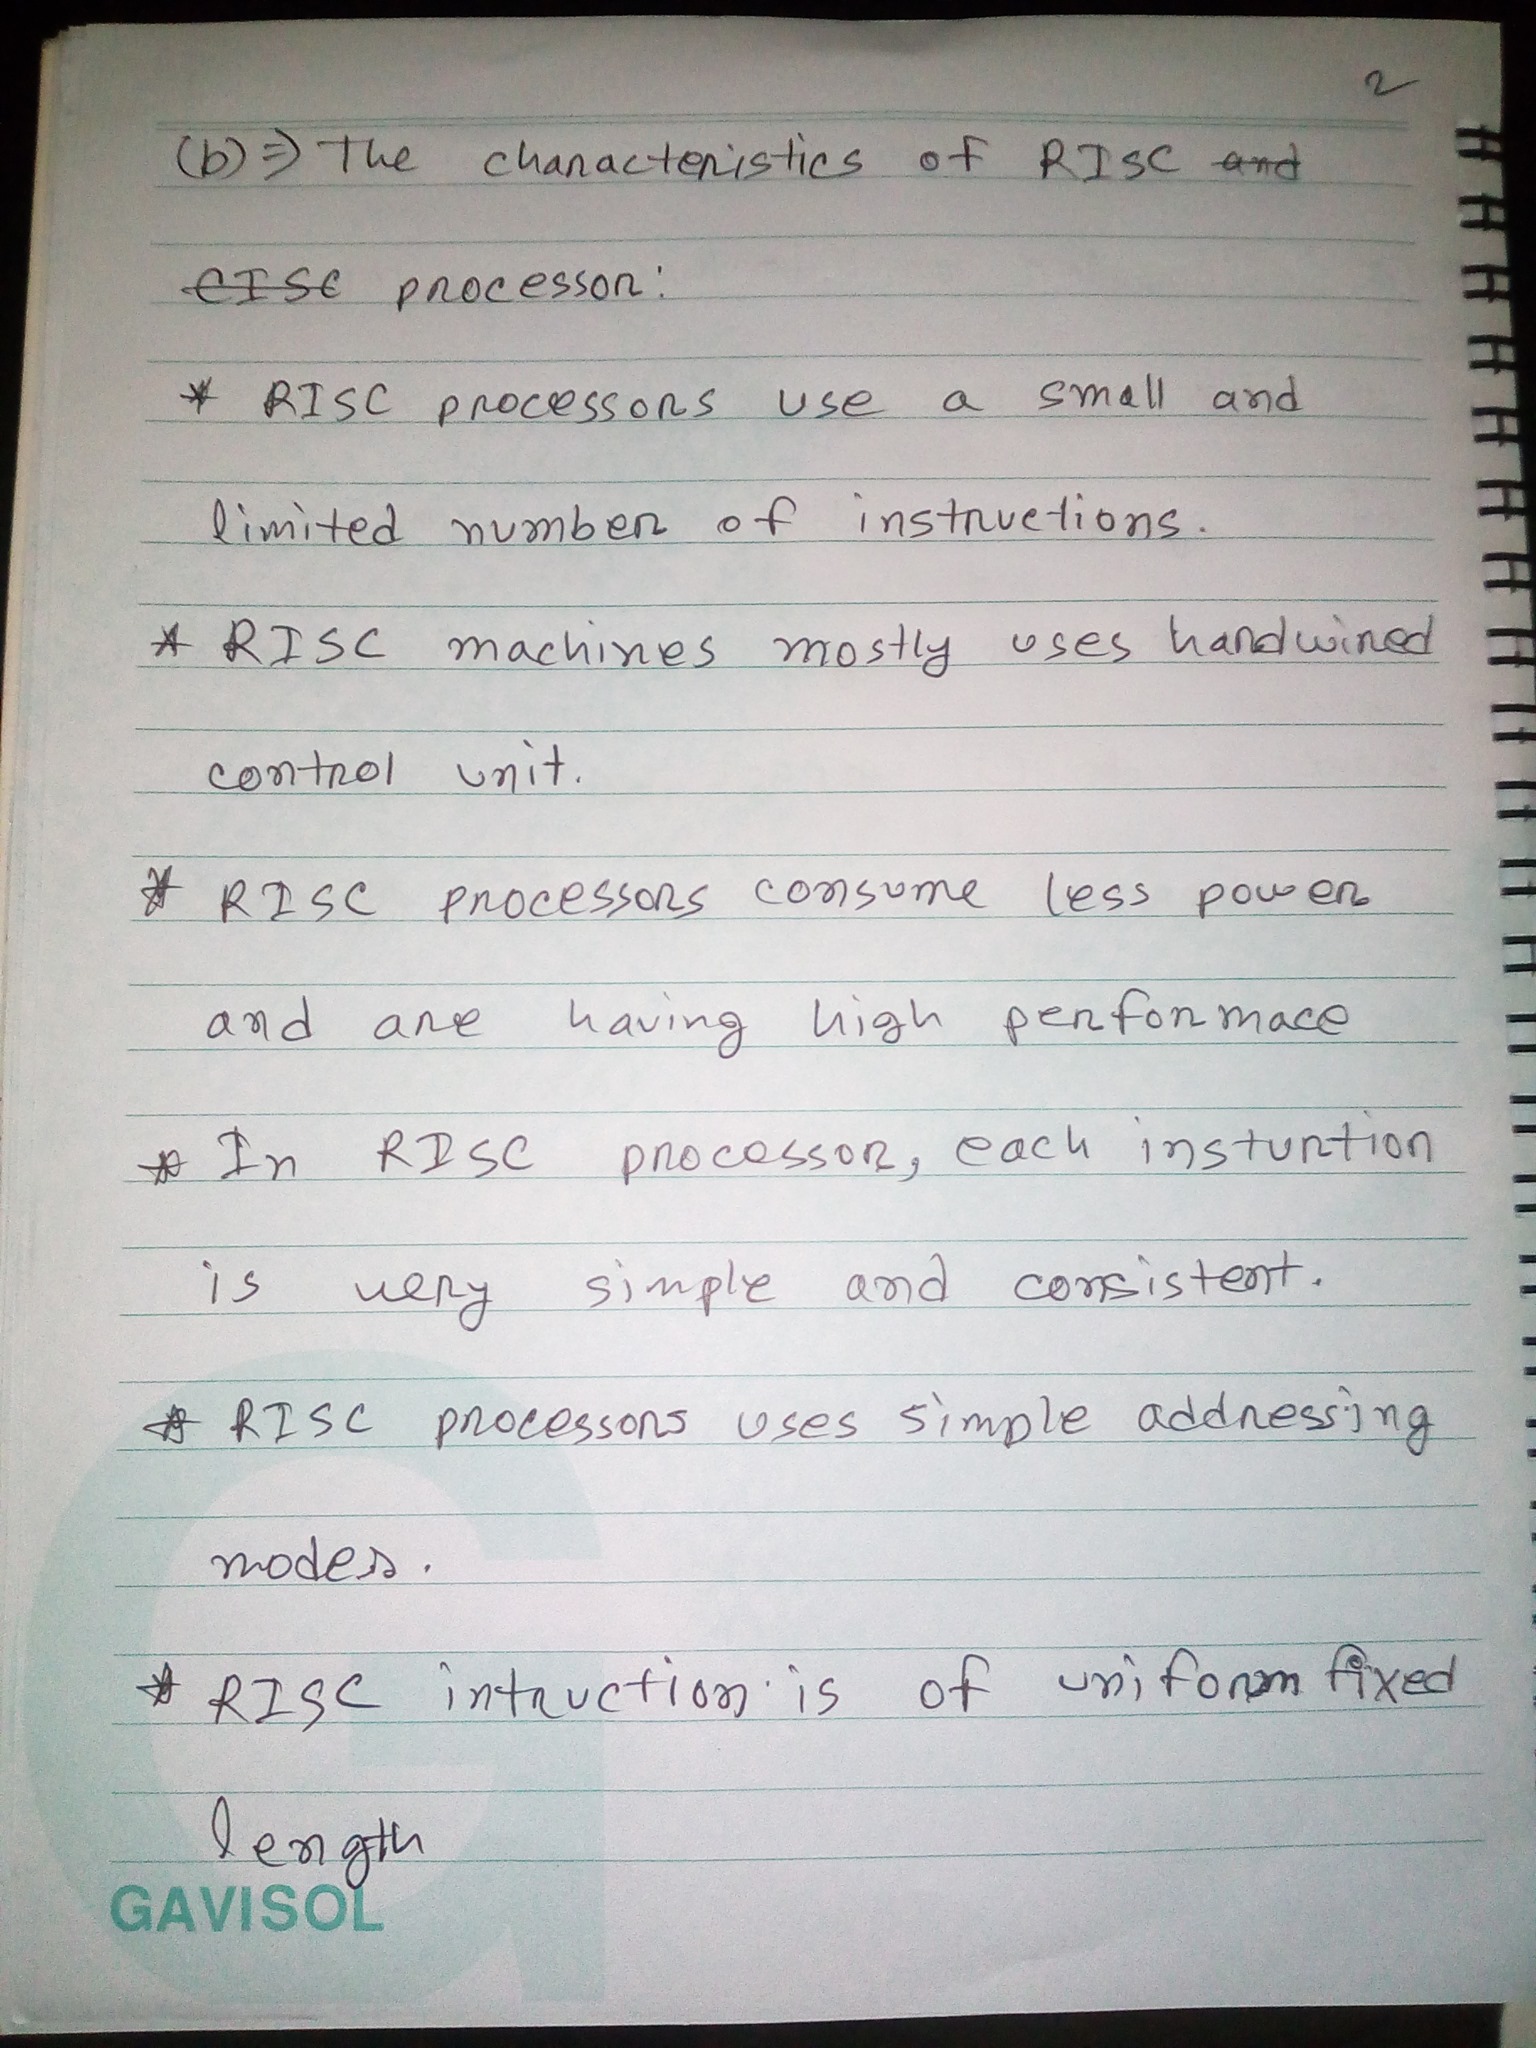 2
(b)⇒ The characteristics of RISC and
CISC processor:
* RISC processors use a small and
limited number of instructions.
* RISC machines mostly uses handwired
control unit.
* RISC processors consume less power
and are having high performace
* In RISC processor, each insturtion
is very simple and consistent.
* RISC processors uses simple addressing
modes.
* RISC intruction is of uniform fixed
length
GAVISOL